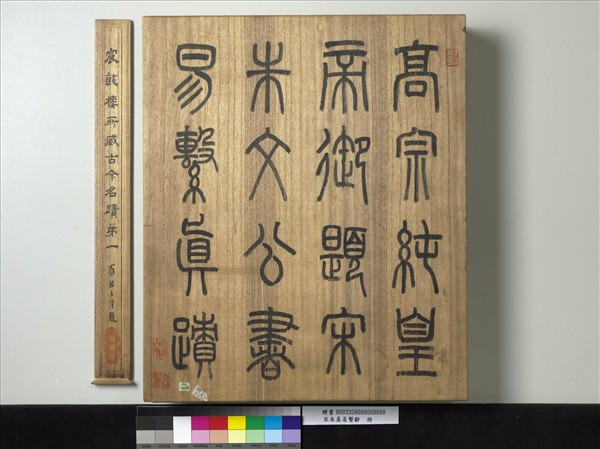 高宗純皇
帝御題宋
朱文公書
易繫眞蹟
宸翰樓所藏古今名蹟弟一
羅振玉謹題
贈書 000335N000000000
宋朱熹易繫辭 冊